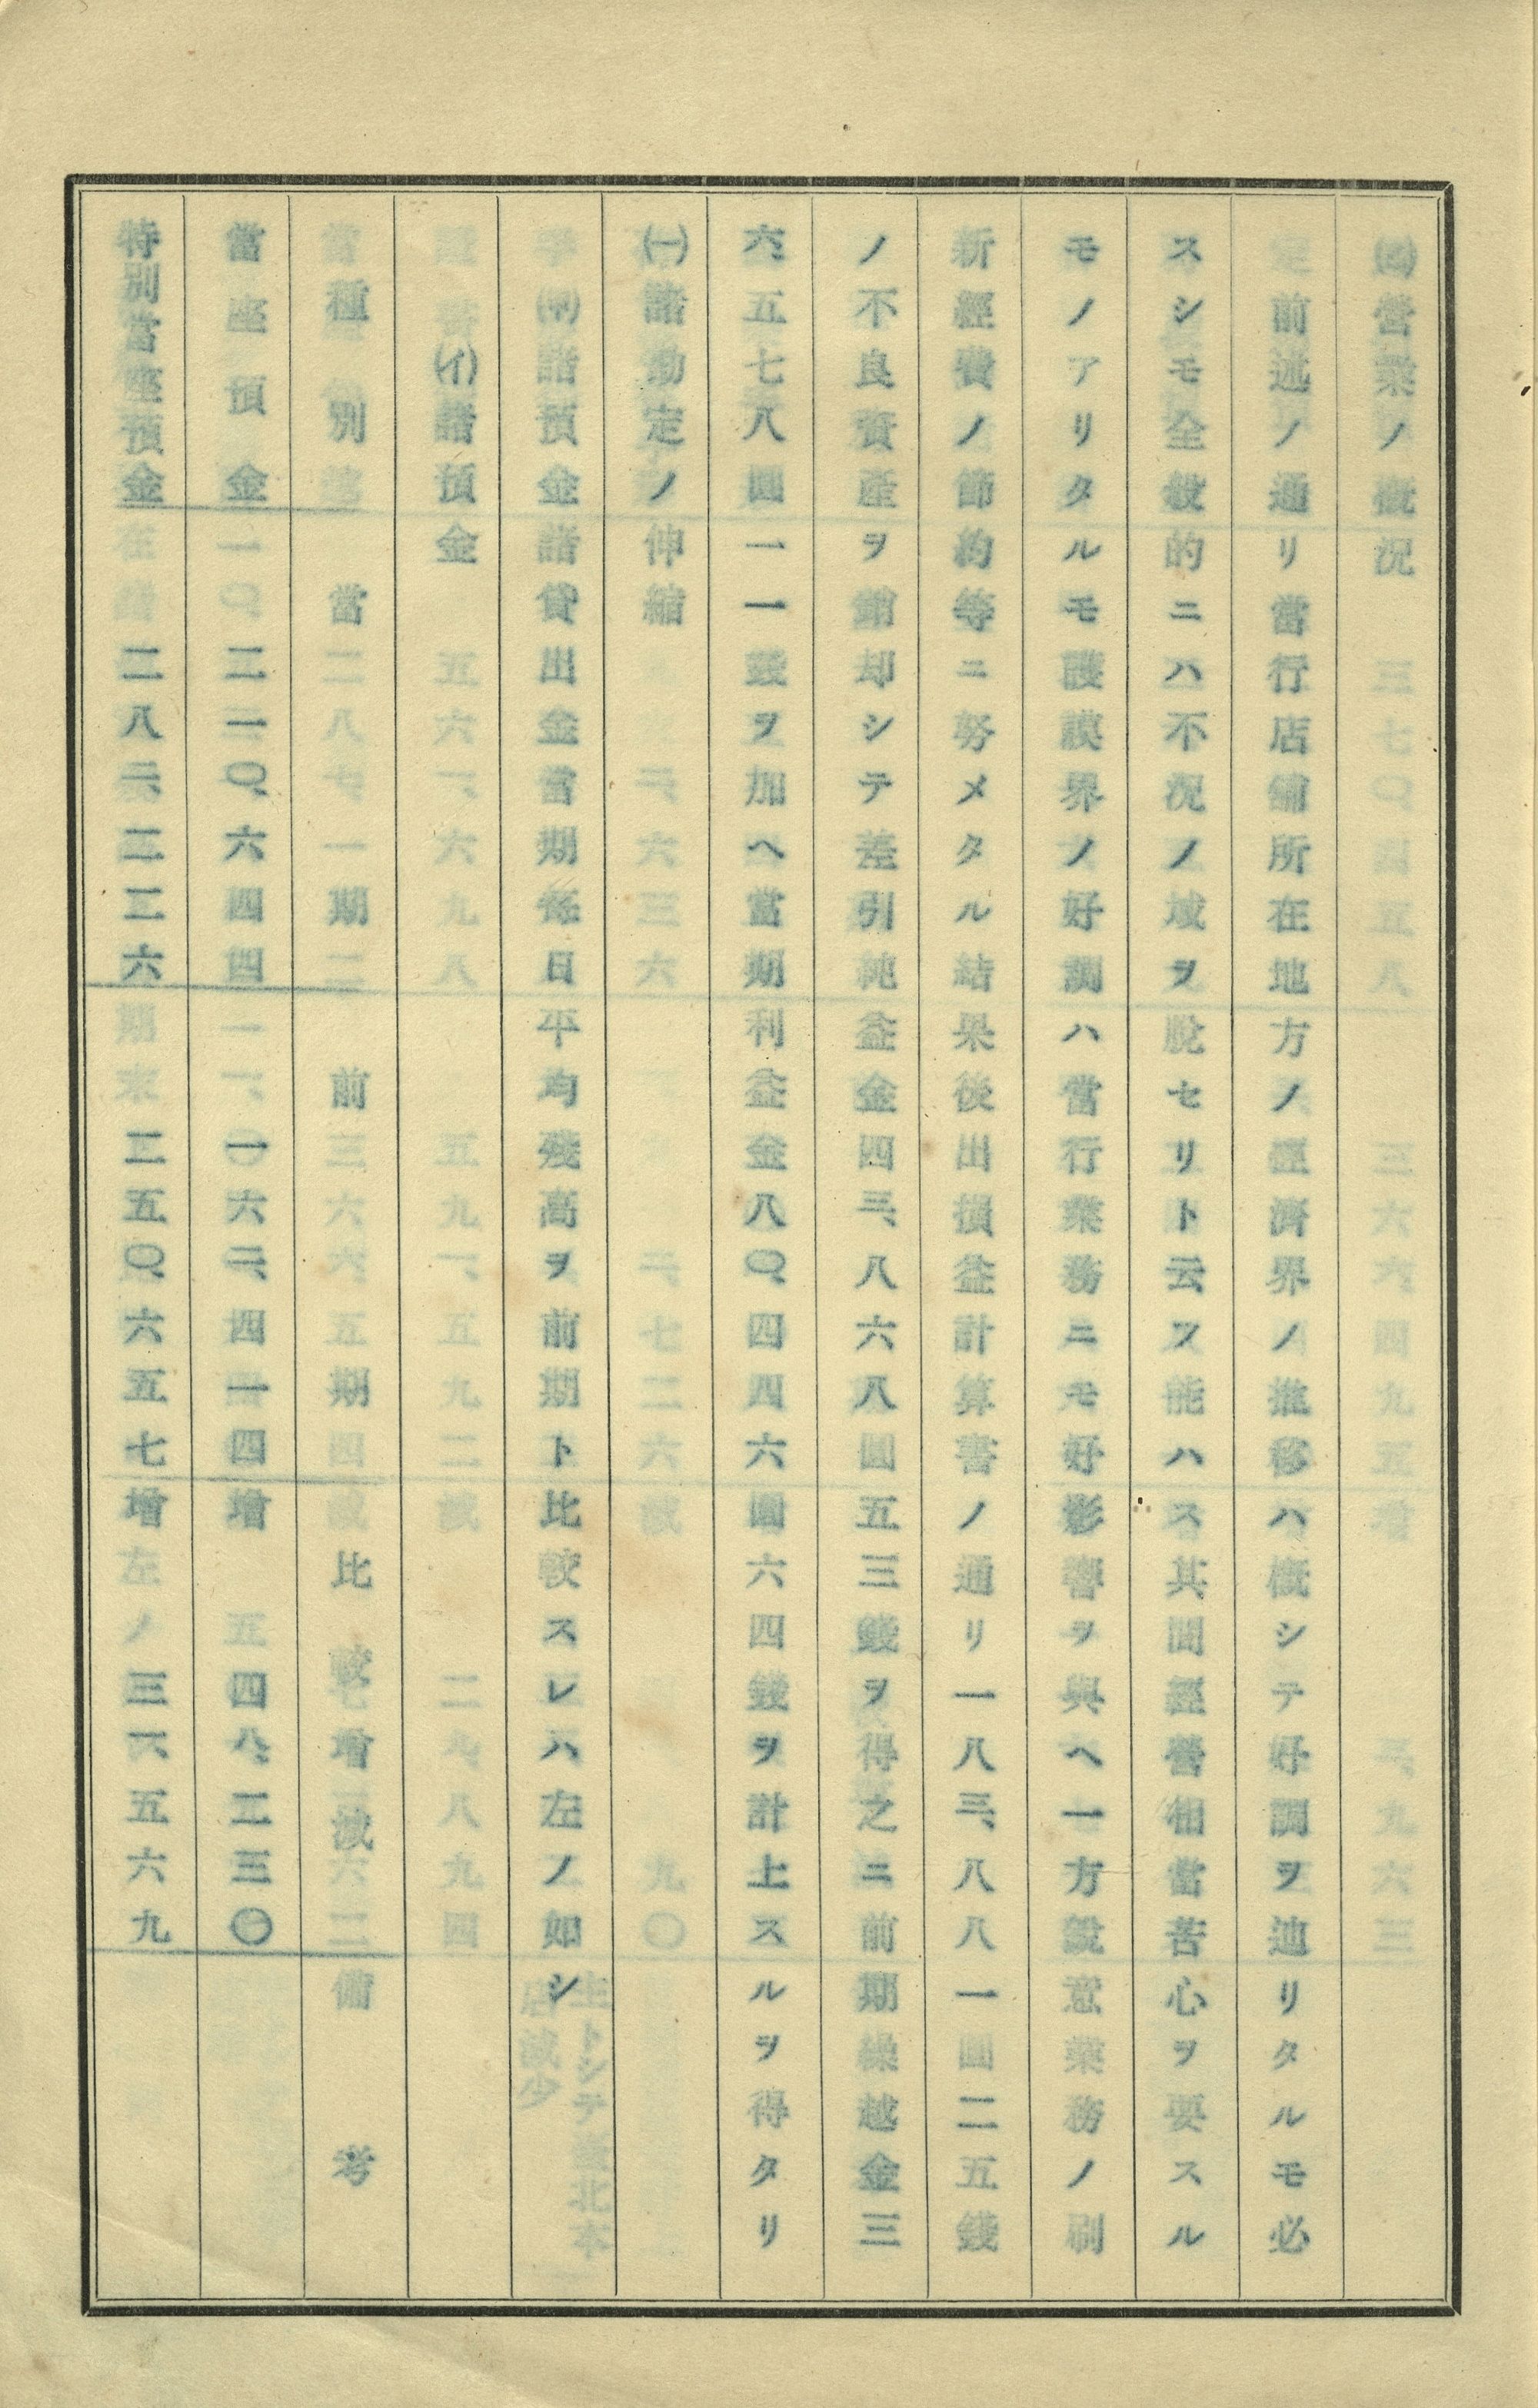 ㈣營業ノ概況
前述ノ通リ當行店舖所在地方ノ經濟界ノ推移ハ概シテ好調ヲ辿リタルモ必
スシモ全般的ニハ不況ノ域ヲ脫セリト云ス能ハス其間經營相當苦心ヲ要スル
モノアリタルモ護謨界ノ好調ハ當行業務ニモ好影響ヲ與ヘ一方銳意業務ノ刷
新經費ノ節約等ニ努メタル結果後出損益計算書ノ通リ一八三、八八一圓二五錢
ノ不良資產ヲ銷却シテ差引純益金四三、八六八圓五三錢ヲ得之ニ前期繰越金三
六、五七八圓一一錢ヲ加ヘ當期利益金八〇、四四六圓六四錢ヲ計上スルヲ得タリ
㈠諸勘定ノ伸縮
諸預金諸貸出金當期每日平均殘高ヲ前期ト比較スレハ左ノ如シ
(イ)諸預金
種別 當期 前期 比較增減 備考
當座預金 二一〇、六四四 一六二、四一四 增 四八、二三〇
特別當座預金 二八二、二二六 二五〇、六五七 增 三一、五六九